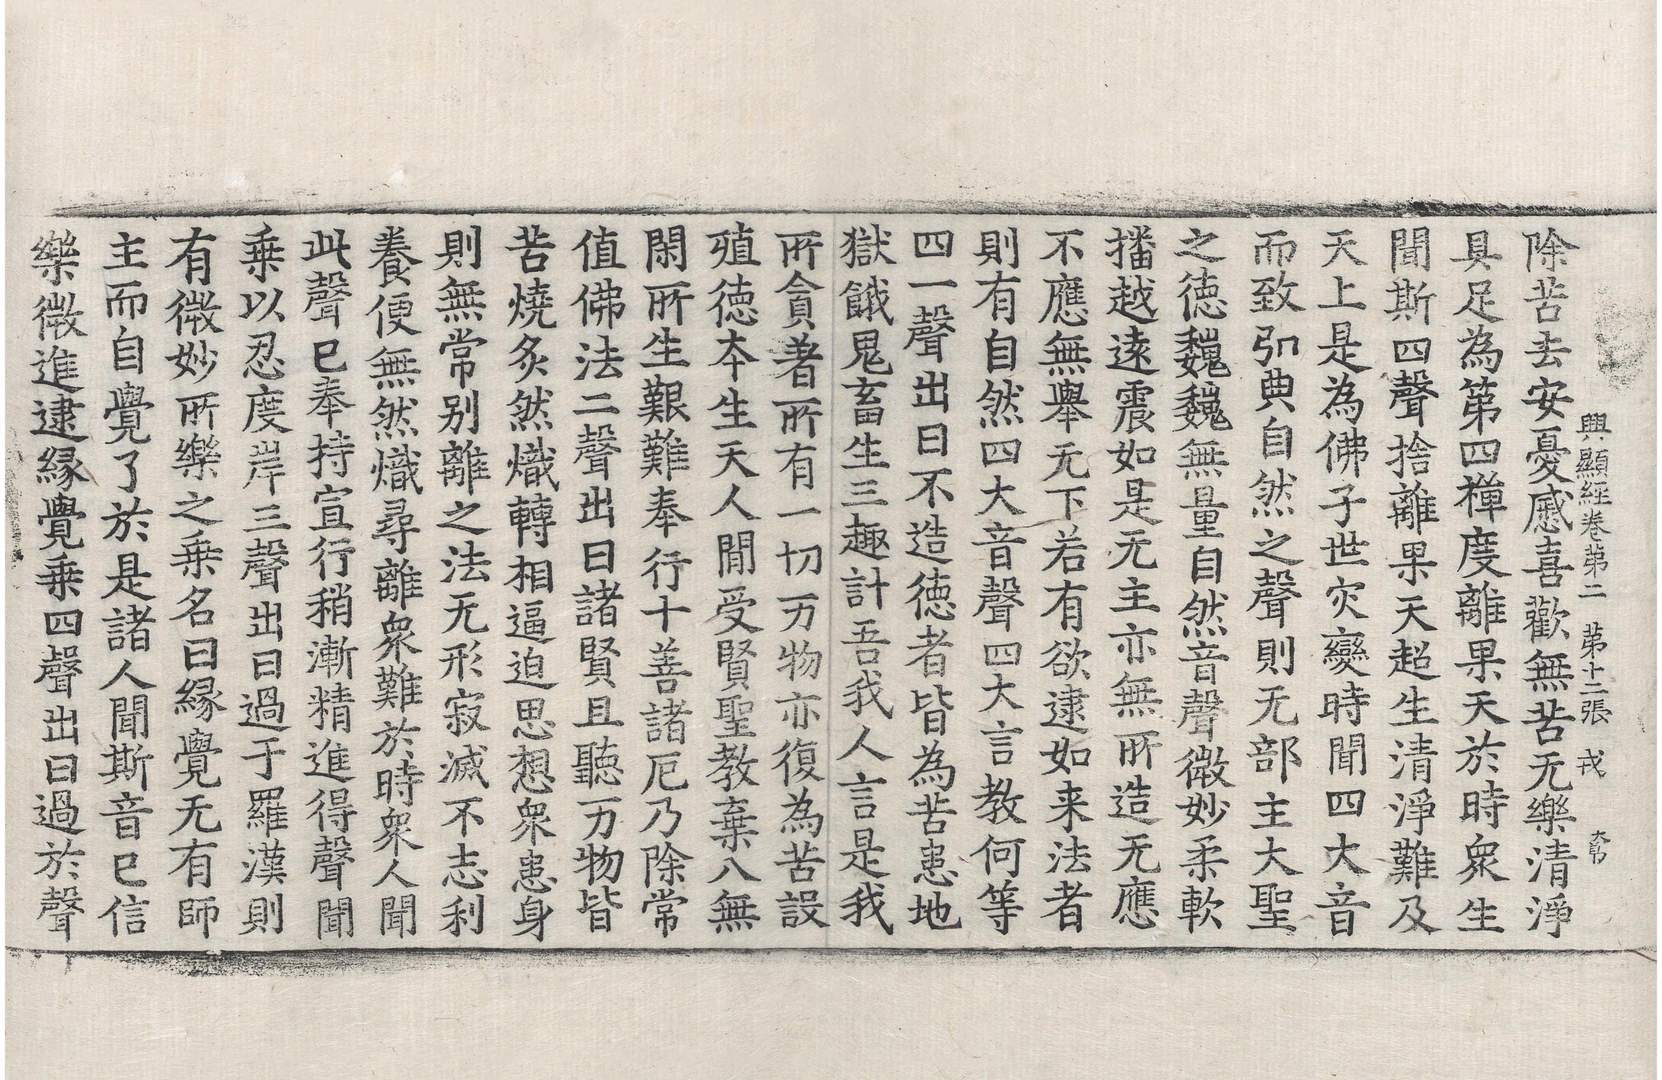 興顯經卷第二 第十二張 戎
除苦去安憂慼喜歡無苦无樂清淨
具足為第四禪度離果天於時衆生
聞斯四聲捨離果天超生清淨難及
天上是為佛子世灾變時聞四大音
而致弘典自然之聲則无部主大聖
之徳巍巍無量自然音聲微妙柔軟
播越遠震如是无主亦無所造无應
不應無舉无下若有欲逮如来法者
則有自然四大音聲四大言教何等
四一聲出曰不造徳者皆為苦患地
獄餓鬼畜生三趣計吾我人言是我
所貪著所有一切万物亦復為苦設
殖徳夲生天人間受賢聖教棄八無
閑所生艱難奉行十善諸厄乃除常
值佛法二聲出曰諸賢且聽万物皆
苦燒炙然熾轉相逼迫思想衆患身
則無常別離之法无形寂滅不志利
養便無然熾尋離衆難於時衆人聞
此聲已奉持宣行稍漸精進得聲聞
乗以忍度岸三聲出曰過于羅漢則
有微妙所樂之乗名曰緣覺无有師
主而自覺了於是諸人聞斯音已信
樂微進逮緣覺乗四聲出曰過於聲